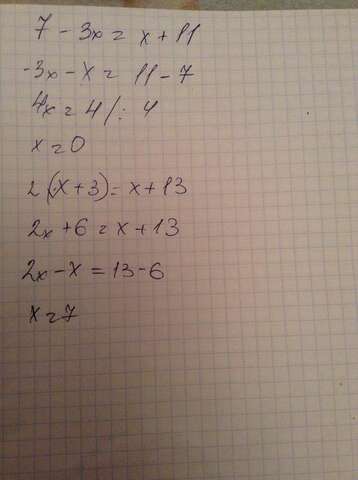 7 - 3x = x + 11
-3x - x = 11 - 7
4x = 4 /: 4
x = 0
2(x + 3) = x + 13
2x + 6 = x + 13
2x - x = 13 - 6
x = 7